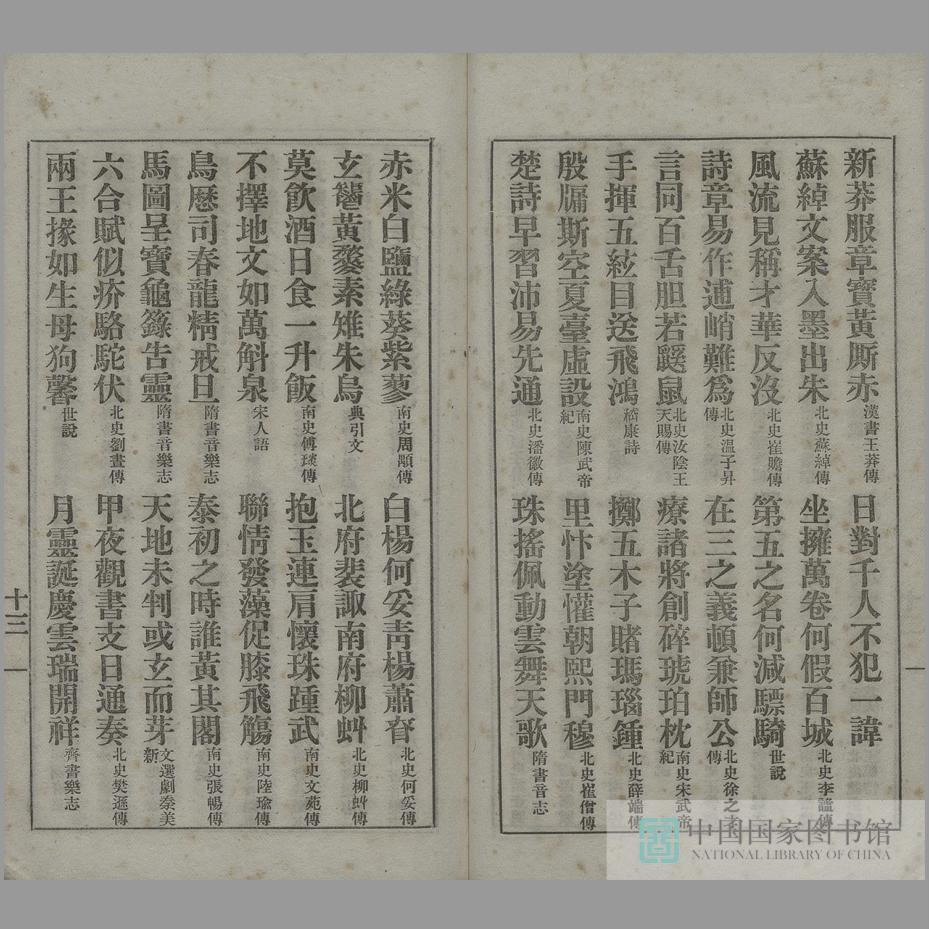 新莽服章寶黃厮赤漢書王莽傳 日對千人不犯一諱
蘇綽文案入墨出朱北史蘇綽傳 坐擁萬卷何假百城北史李謐傳
風流見稱才華反沒北史崔贍傳 第五之名何減驃騎世說
詩章易作逋峭難爲北史温子昇傳 在三之義頓兼師公北史徐之才傳
言同百舌胆若鼷鼠北史汝陰王天賜傳 療諸將創碎琥珀枕南史宋武帝紀
手揮五絃目送飛鴻嵇康詩 擲五木子賭瑪瑙鍾北史薛端傳
殷牖斯空夏臺虛設南史陳武帝紀 里忭塗懽朝熙門穆北史崔僧傳
楚詩早習沛易先通北史潘徽傳 珠搖佩動雲舞天歌隋書音志
赤米白鹽綠葵紫蓼南史周顒傳 白楊何妥青楊蕭眘北史何妥傳
玄秬黃麰素雉朱烏典引文 北府裴諏南府柳虯北史柳虯傳
莫飲酒日食一升飯南史傅琰傳 抱玉連肩懷珠踵武南史文苑傳
不擇地文如萬斛泉宋人語 聯情發藻促膝飛觴南史陸瑜傳
鳥歷司春龍精戒旦隋書音樂志 泰初之時誰黃其閣南史張暢傳
馬圖呈寶龜籙告靈隋書音樂志 天地未判或玄而芽文選劇秦美新
六合賦似疥駱駝伏北史劉晝傳 甲夜觀書支日通奏北史樊遜傳
兩王掾如生母狗馨世說 月靈誕慶雲瑞開祥齊書樂志
十三
中国国家图书馆
NATIONAL LIBRARY OF CHINA